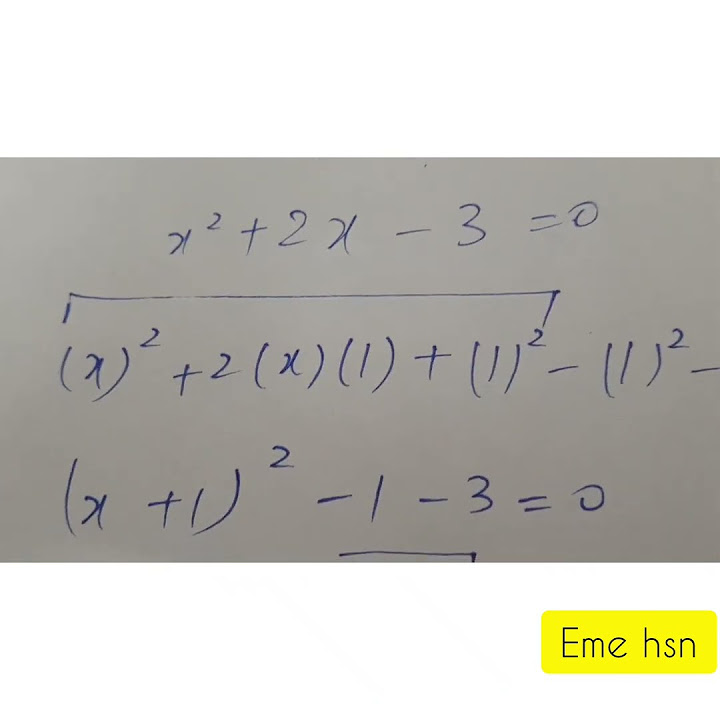 x² + 2x - 3 = 0
(x)² + 2(x)(1) + (1)² - (1)² -
(x + 1)² - 1 - 3 = 0
Eme hsn